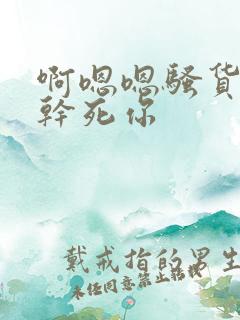 啊嗯嗯骚货
幹死你
戴戒指的男生
未经同意禁止转载